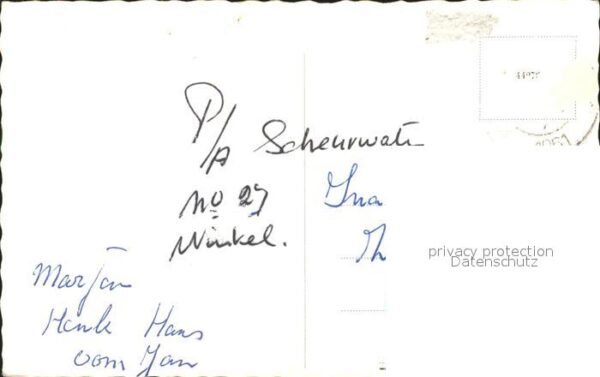 44973
P/A Scheurwat
No 27
Winkel.
Ina
Marjan
Henk Hans
oom Jan
privacy protection
Datenschutz